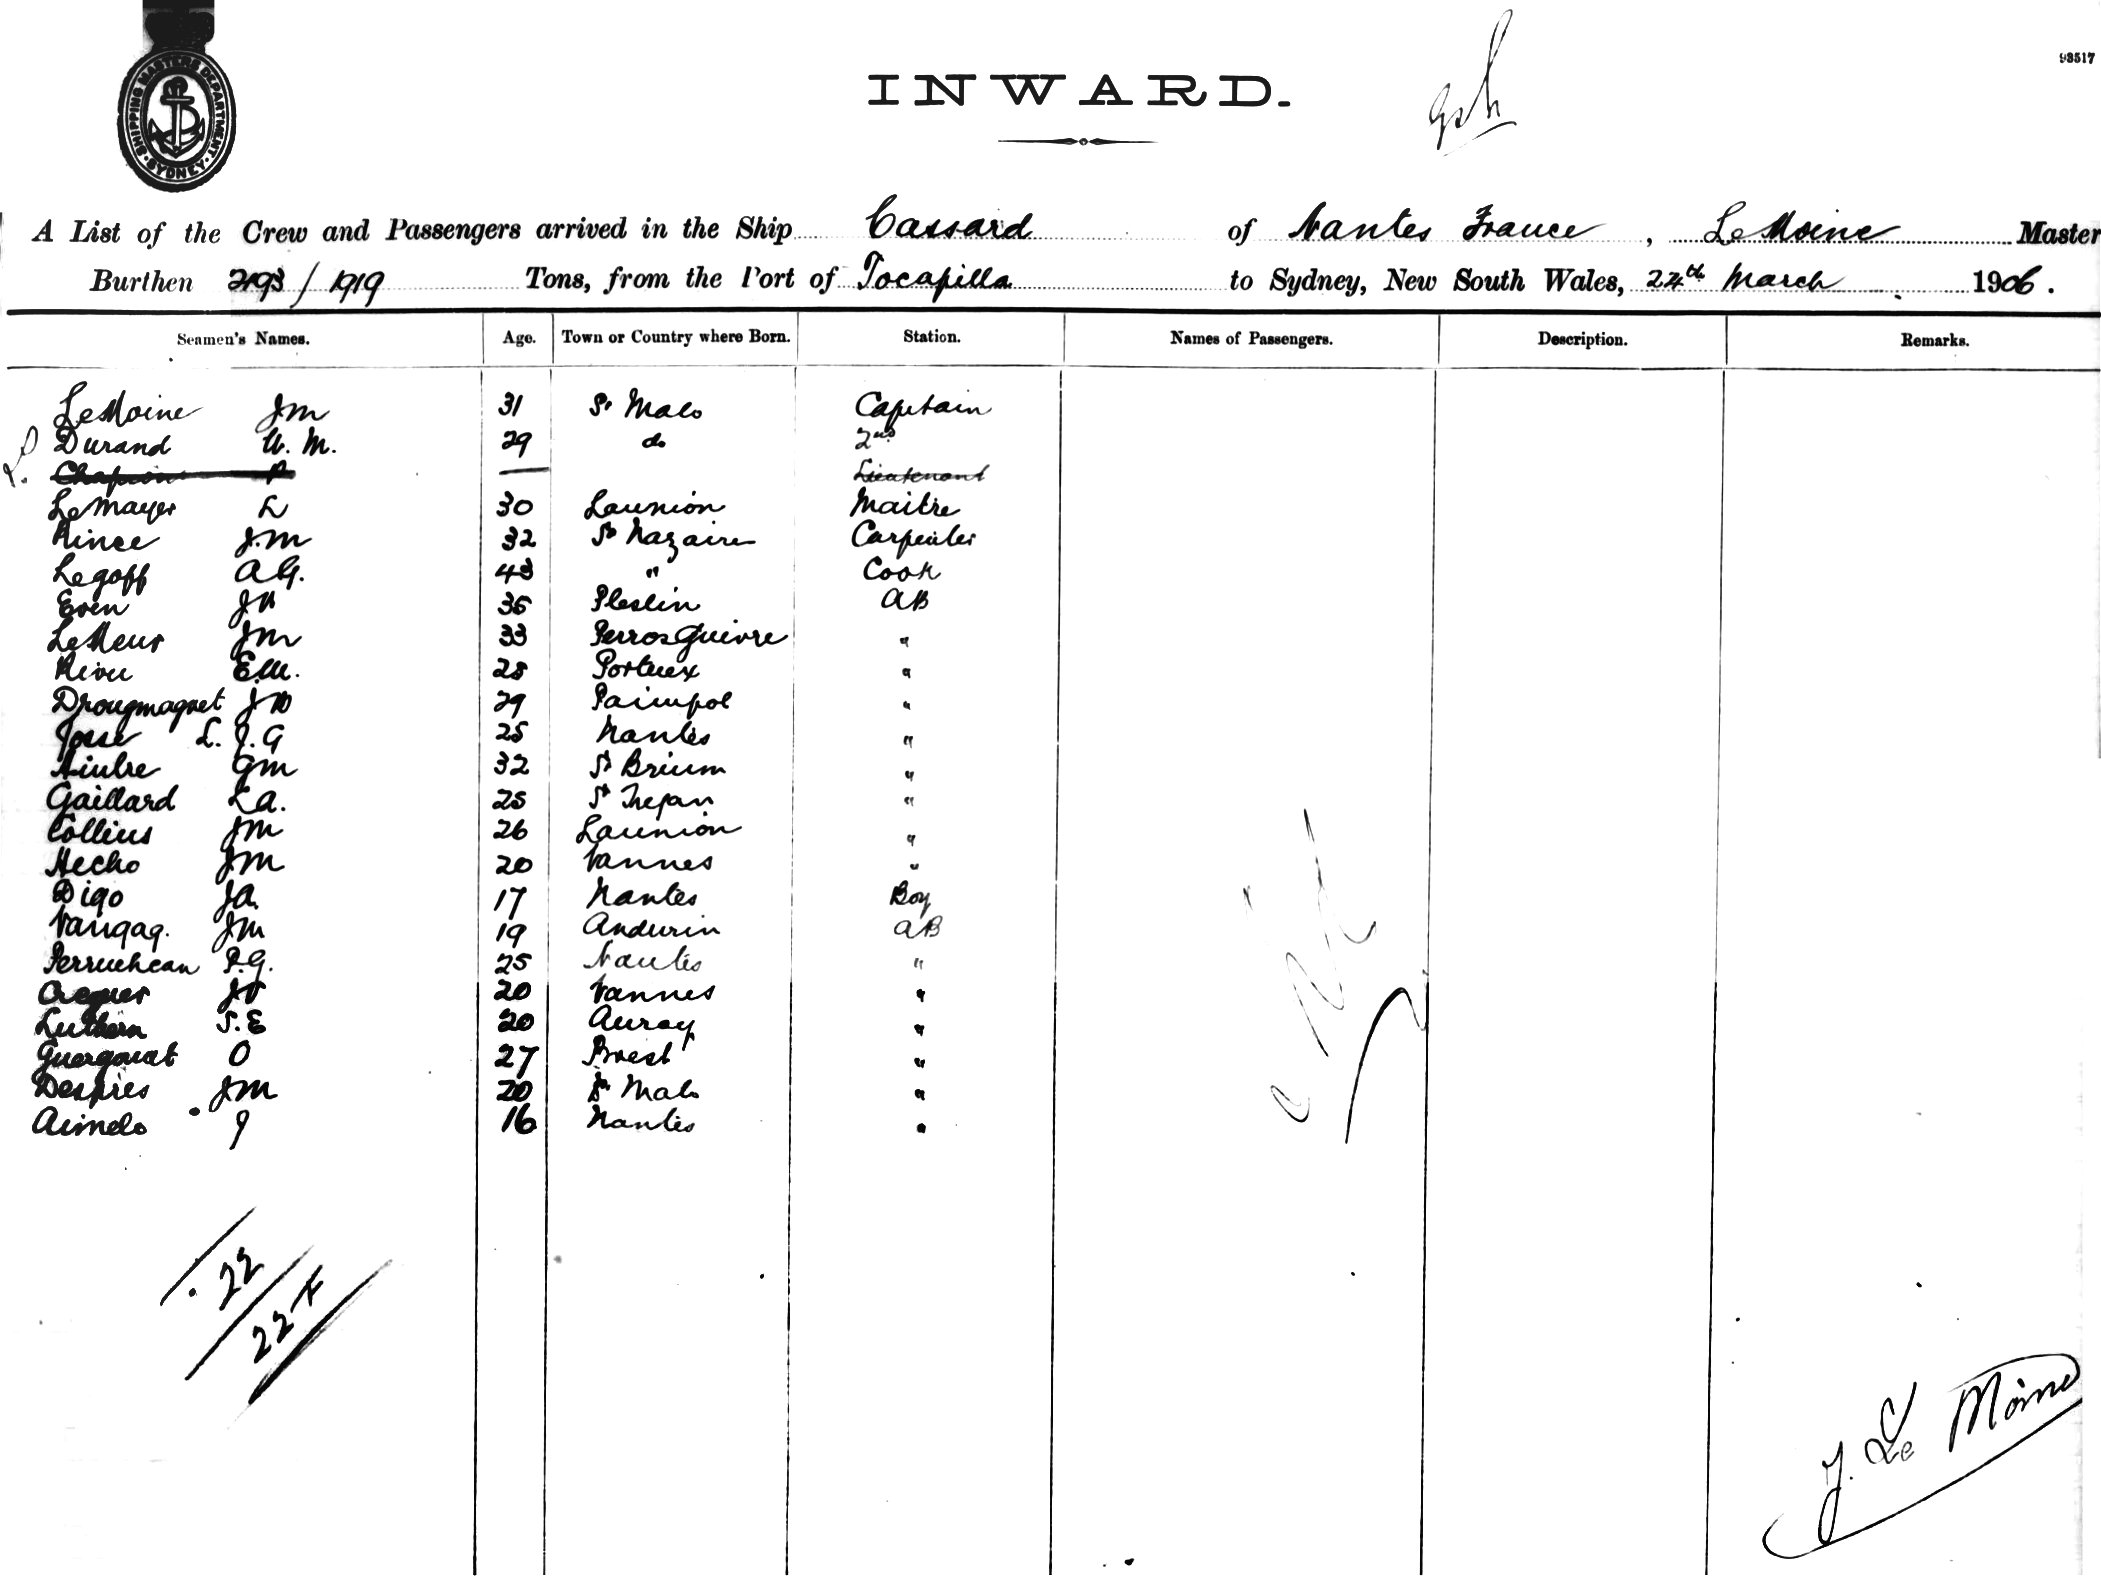 SHIPPING MASTERS DEPARTMENT · SYDNEY ·
93517
INWARD.
A List of the Crew and Passengers arrived in the Ship Cassard of Nantes France, LeMoine Master
Burthen 2193/1919 Tons, from the Port of Tocapilla to Sydney, New South Wales, 24th March 1906.
Seamen's Names. Age. Town or Country where Born. Station. Names of Passengers. Description. Remarks.
LeMoine JM 31 St Malo Capitain
Durand U. M. 29 do 2nd
Chapion P Lieutenant
LeMayer L 30 Launion Maitre
Rince J.M 32 St Nazaire Carpenter
Legoff A.G. 43 " Cook
Even 36 Plestin AB
LeMeur JM 33 Perros Guivre "
Rivu E.M. 28 Portuex "
Drougmaguet J 29 Paimpol "
Josse L. J. G 25 Nantes "
GM 32 St Brium "
Gaillard L.A. 25 St Trejan "
Collins JM 26 Launion "
Hecho JM 20 Vannes "
Digo JA. 17 Nantes Boy
Vangag. JM 19 Andurin AB
Perruchean P.G. 25 Nantes "
20 Vannes "
Luthern S.E 20 Auray "
Guergouat O 27 Brest "
Despres JM 20 St Malo "
Aimelo J 16 Nantes "
22
22 F
J. Le Moine